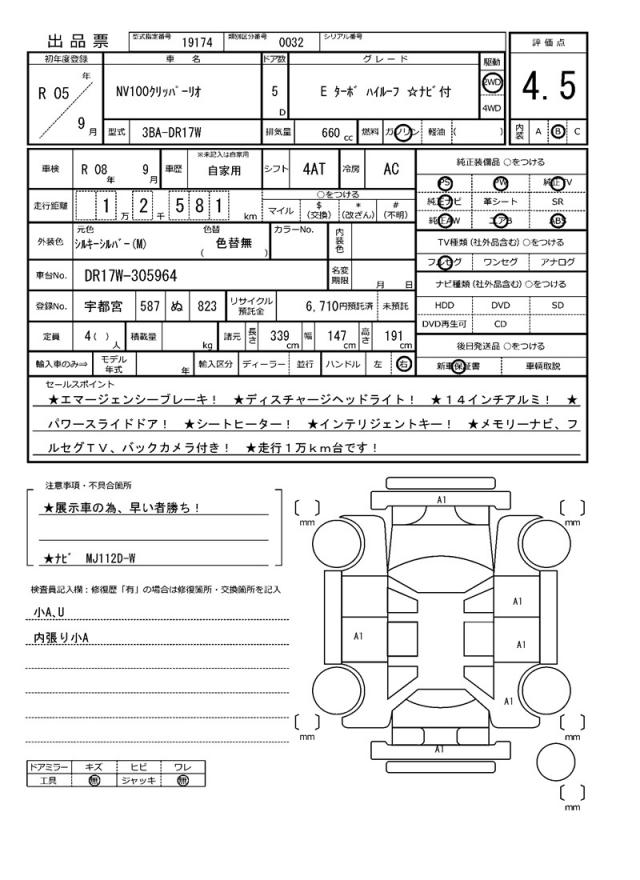 出品票 型式指定番号 19174 類別区分番号 0032 シリアル番号
評価点
4.5
初年度登録 車名 ドア数 グレード 駆動
R 05 年 9 月 NV100クリッパーリオ 5 D E ターボ ハイルーフ ☆ナビ付 2WD
4WD
型式 3BA-DR17W 排気量 660 cc 燃料 ガソリン 軽油 ( )
内装 A B C
車検 R 08 年 9 月 車歴 ※未記入は自家用 自家用 シフト 4AT 冷房 AC
純正装備品 ○をつける
PS PW 純正TV
純正ナビ 革シート SR
純正AW エアB ABS
走行距離 1 万 2 千 5 8 1 km
○をつける
マイル $(交換) *(改ざん) #(不明)
外装色 元色 シルキーシルバー(M) 色替 色替無 ( ) カラーNo. 内装色
TV種類(社外品含む) ○をつける
フルセグ ワンセグ アナログ
車台No. DR17W-305964 名変期限 月 日
ナビ種類(社外品含む) ○をつける
HDD DVD SD
DVD再生可 CD
登録No. 宇都宮 587 ぬ 823 リサイクル預託金 6,710円預託済 未預託
定員 4( )人 積載量 kg 諸元 長さ 339 cm 幅 147 cm 高さ 191 cm
後日発送品 ○をつける
新車保証書 車輌取説
輸入車のみ⇒ モデル年式 年 輸入区分 ディーラー 並行 ハンドル 左 右
セールスポイント
★エマージェンシーブレーキ! ★ディスチャージヘッドライト! ★14インチアルミ! ★
パワースライドドア! ★シートヒーター! ★インテリジェントキー! ★メモリーナビ、フ
ルセグTV、バックカメラ付き! ★走行1万km台です!
注意事項・不具合箇所
★展示車の為、早い者勝ち!
★ナビ MJ112D-W
検査員記入欄:修復歴「有」の場合は修復箇所・交換箇所を記入
小A、U
内張り小A
ドアミラー キズ ヒビ ワレ
工具 無 ジャッキ 無
A1
mm
mm
A1
A1
A1
A1
mm
mm
A1
mm